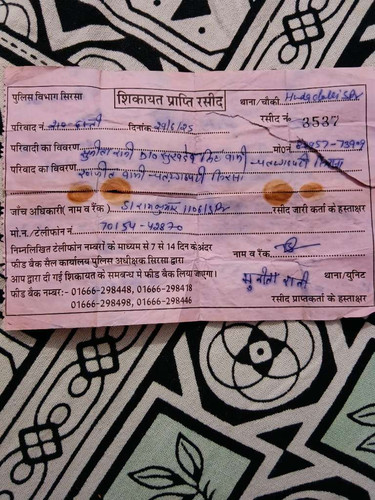 पुलिस विभाग सिरसा
शिकायत प्राप्ति रसीद
थाना/चौकी Huda
रसीद नं० 3537
परिवाद नं. 210- दिनांक 29/5/25
परिवादी का विवरण सुनीता रानी D/O सुखदेव सिंह वासी मो०नं० -73909
परिवाद का विवरण वासी
जांच अधिकारी ( नाम व रैंक ) SI रामकुमार 1106/SRS रसीद जारी कर्ता के हस्ताक्षर
मो.न./टेलीफोन नं 70154-42870
निम्नलिखित टेलीफोन नम्बरों के माध्यम से 7 से 14 दिन के अंदर
फीड बैक सैल कार्यालय पुलिस अधीक्षक सिरसा द्वारा नाम व रैंक
आप द्वारा दी गई शिकायत के सम्बन्ध में फीड बैक लिया जाएगा।
फीड बैक नम्बर:- 01666-298448, 01666-298418
01666-298498, 01666-298446
सुनीता रानी थाना/युनिट
रसीद प्राप्तकर्ता के हस्ताक्षर